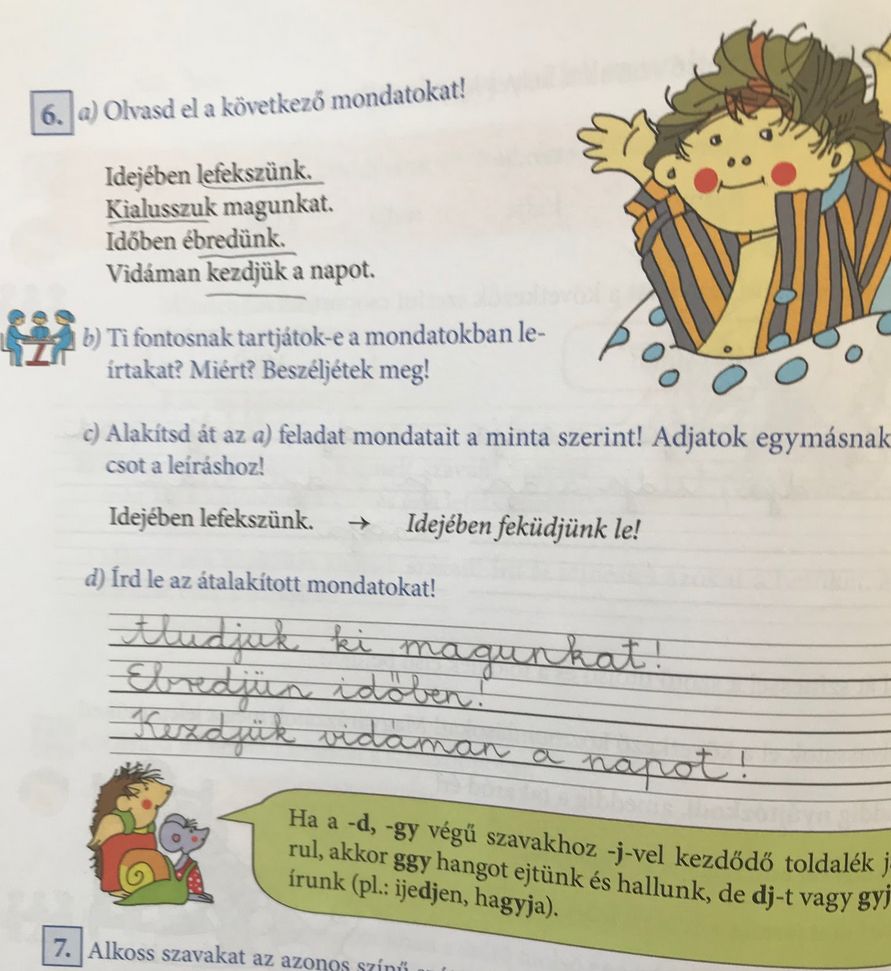 6. a) Olvasd el a következő mondatokat!
Idejében lefekszünk.
Kialusszuk magunkat.
Időben ébredünk.
Vidáman kezdjük a napot.
b) Ti fontosnak tartjátok-e a mondatokban le-
írtakat? Miért? Beszéljétek meg!
c) Alakítsd át az a) feladat mondatait a minta szerint! Adjatok egymásnak
csot a leíráshoz!
Idejében lefekszünk. → Idejében feküdjünk le!
d) Írd le az átalakított mondatokat!
Aludjuk ki magunkat!
Ebredjün időben!
Kezdjük vidáman a napot!
Ha a -d, -gy végű szavakhoz -j-vel kezdődő toldalék j
rul, akkor ggy hangot ejtünk és hallunk, de dj-t vagy gyj
írunk (pl.: ijedjen, hagyja).
7. Alkoss szavakat az azonos színű